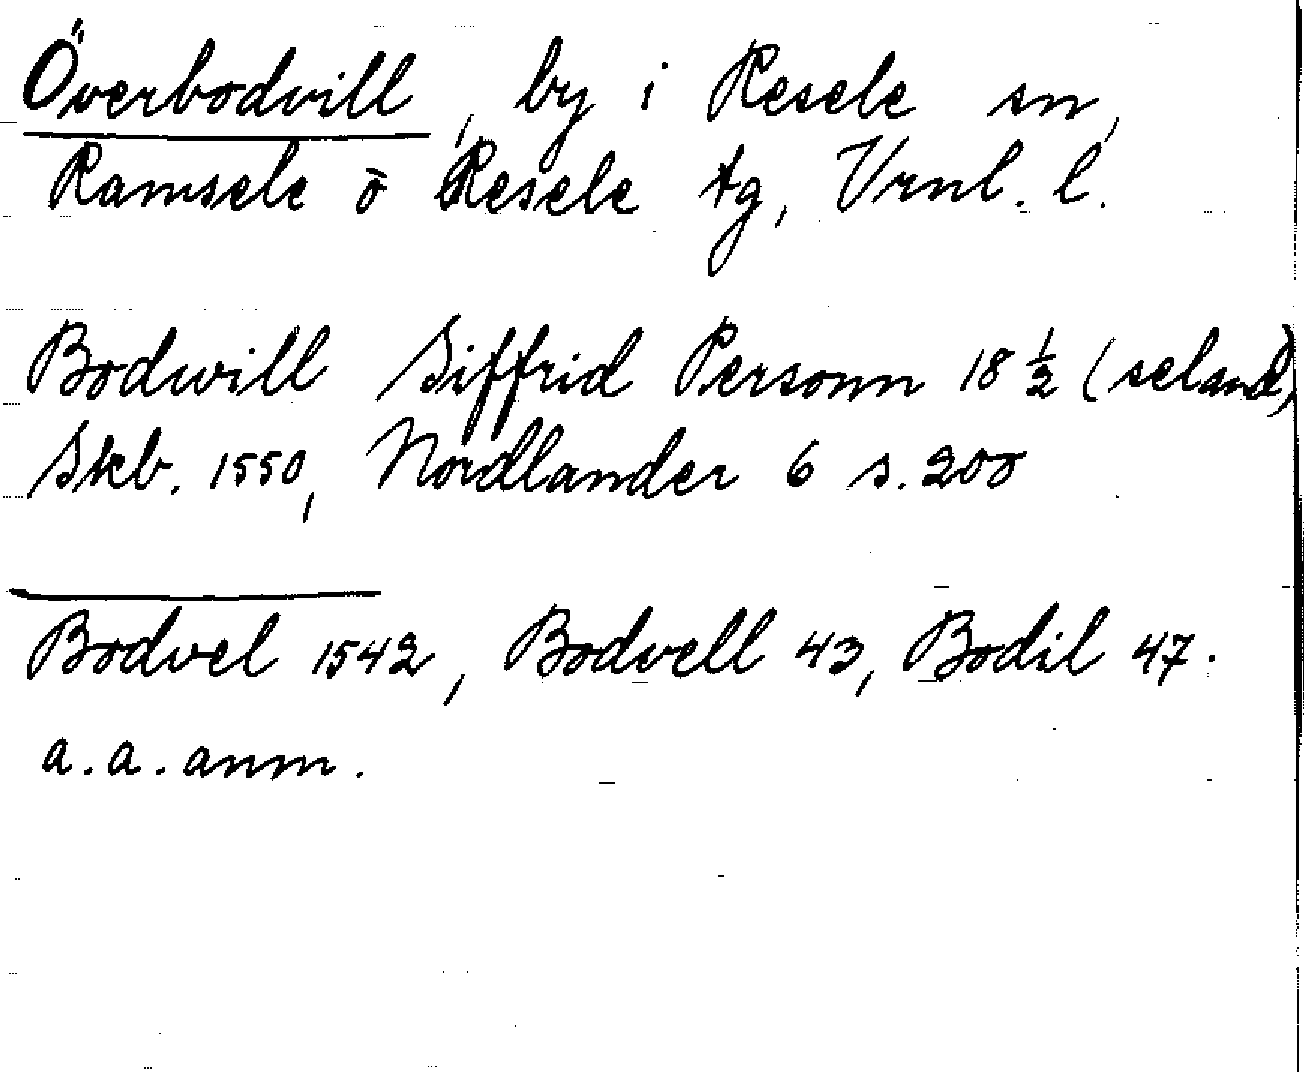 Överbodvill, by i Resele sn,
Ramsele o Resele tg, Vrnl. l.
Bodwill Siffrid Personn 18 ½ (seland)
Skb. 1550, Nordlander 6 s. 200
Bodvel 1542, Bodvell 43, Bodil 47.
a. a. anm.